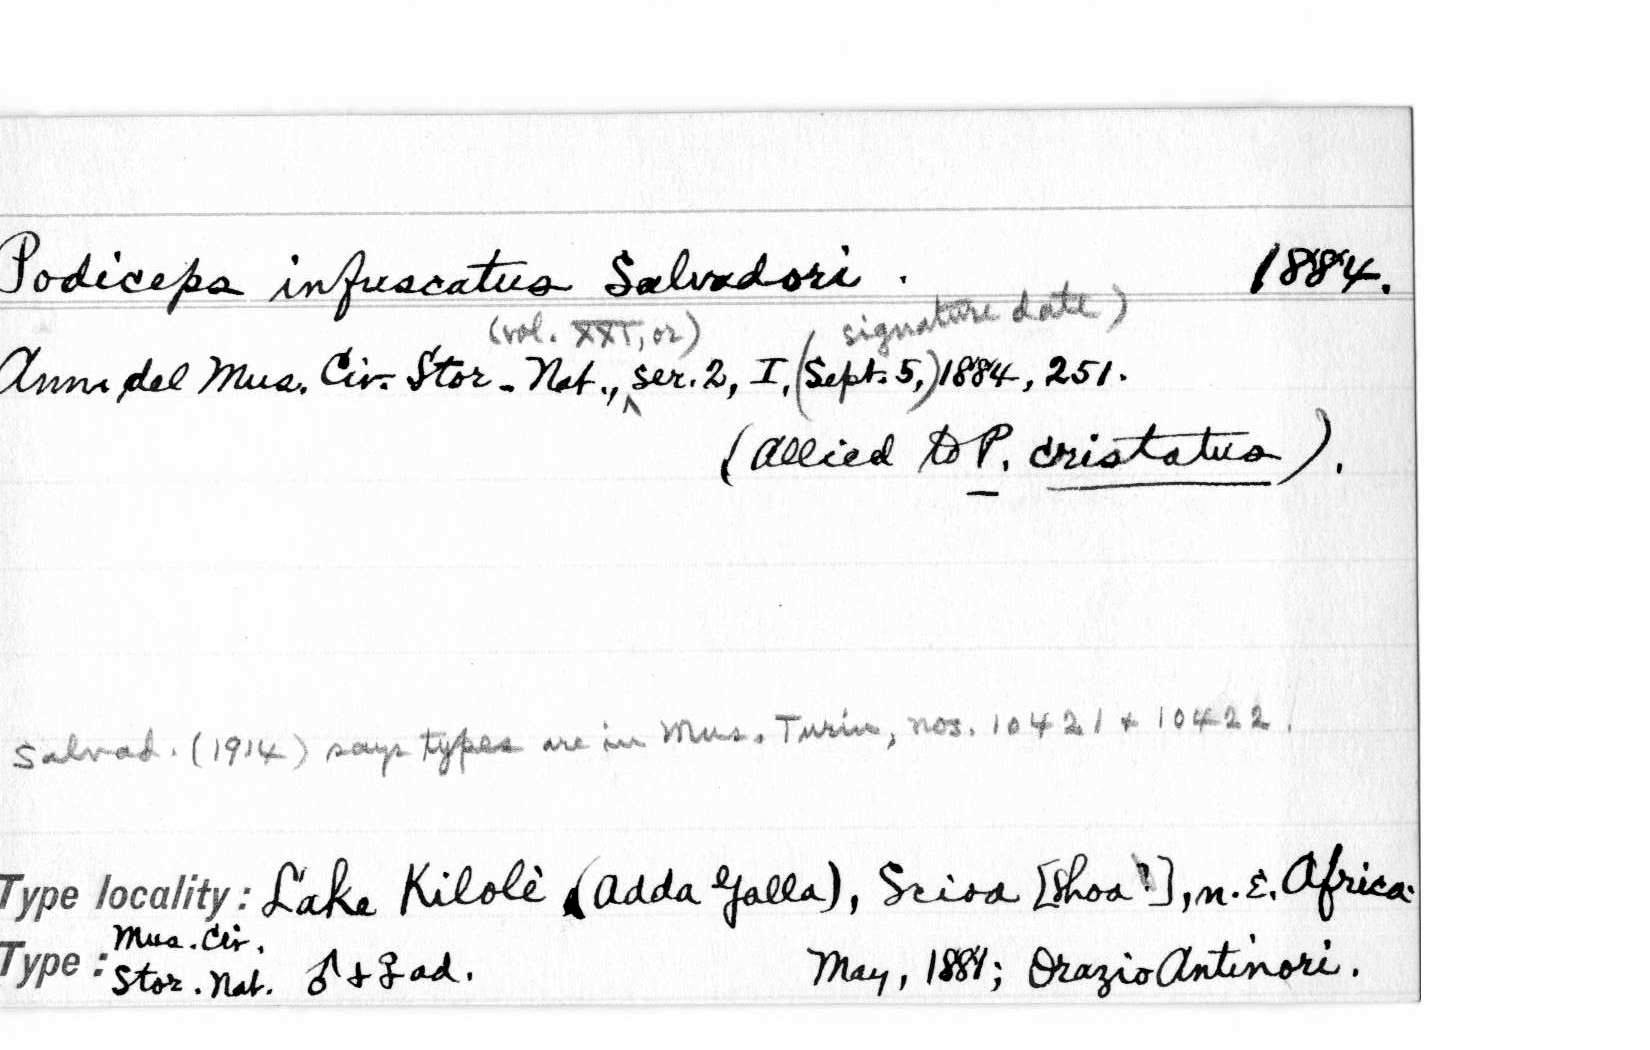 Podiceps infuscatus Salvadori. 1884.
(vol. XXI, or) (signature date)
Ann. del Mus. Civ. Stor. Nat., ser. 2, I, (Sept. 5,) 1884, 251.
(Allied to P. cristatus).
Salvad. (1914) says types are in Mus. Turin, nos. 10421 + 10422.
Type locality: Lake Kilolè (Adda Galla), Scioa [Shoa?], n.E. Africa.
Mus. Civ.
Type: Stor. Nat. ♂ + ♀ ad. May, 1881; Orazio Antinori.